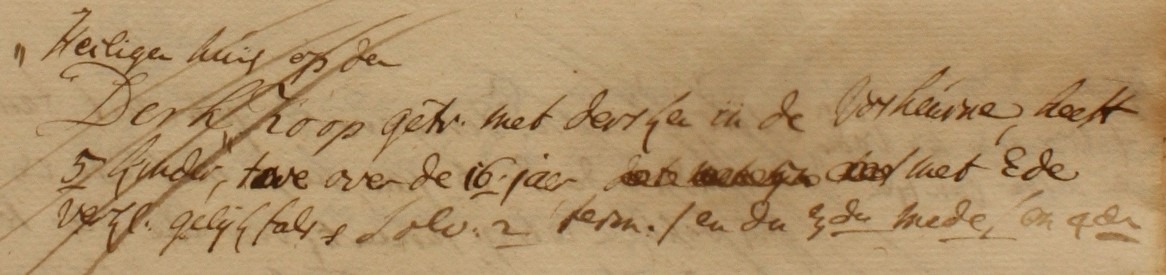 " Heiligen huis op den
Derk Toop getr. met dersken in de Vosheurne, heeft
5 kinder, twe over de 16 jaer met Ede
verkl. gelijk falv. solv. 2 term. / en den den mede, en